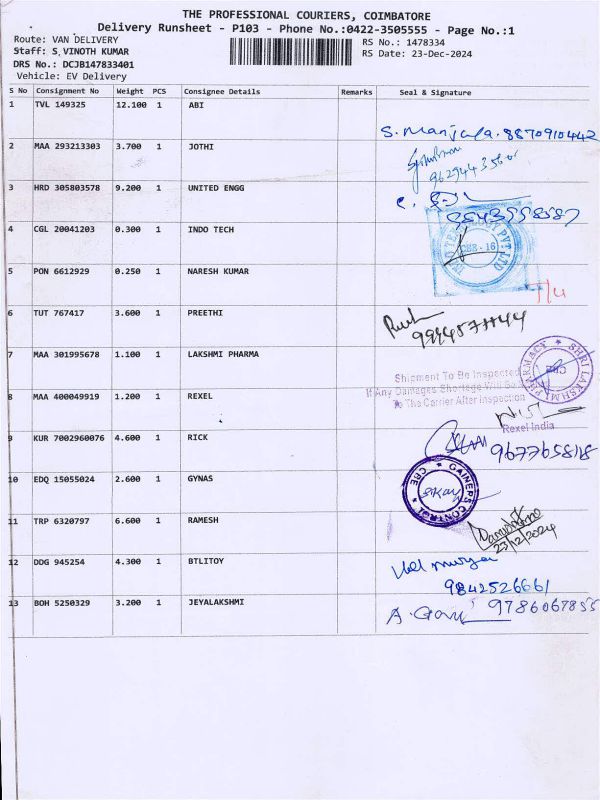 THE PROFESSIONAL COURIERS, COIMBATORE
Delivery Runsheet - P103 - Phone No.:0422-3505555 - Page No.:1
Route: VAN DELIVERY RS No.: 1478334
Staff: S VINOTH KUMAR RS Date: 23-Dec-2024
DRS No.: DCJB147833401
Vehicle: EV Delivery
S No Consignment No Weight PCS Consignee Details Remarks Seal & Signature
1 TVL 149325 12.100 1 ABI
S. Manjula. 8870910442
2 MAA 293213303 3.700 1 JOTHI
3 HRD 305803578 9.200 1 UNITED ENGG
4 CGL 20041203 0.300 1 INDO TECH
CBE - 16
PVT LTD
5 PON 6612929 0.250 1 NARESH KUMAR
6 TUT 767417 3.600 1 PREETHI
7 MAA 301995678 1.100 1 LAKSHMI PHARMA
SHRI LAKSHMI PHARMACY
CBE
Shipment To Be Inspected
If Any Damages Shortage Will Be
To The Carrier After Inspection
8 MAA 400049919 1.200 1 REXEL
Rexel India
9 KUR 7002960076 4.600 1 RICK
9677658118
10 EDQ 15055024 2.600 1 GYNAS
CBE
11 TRP 6320797 6.600 1 RAMESH
23/12/2024
12 DDG 945254 4.300 1 BTLITOY
9842526661
13 BOH 5250329 3.200 1 JEYALAKSHMI
9786067855